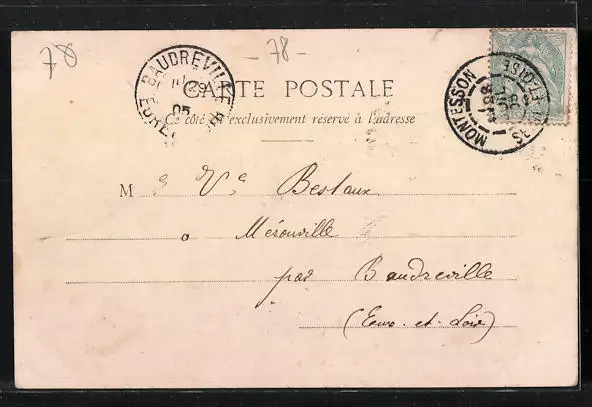 78
- 78 -
BAUDREVILLE
29
05
CARTE POSTALE
Ce côté est exclusivement réservé à l'adresse
MONTESSON
SEINE-ET-OISE
M e Ve Bestaux
à Mérouville
par Baudreville
(Eure-et-Loir)